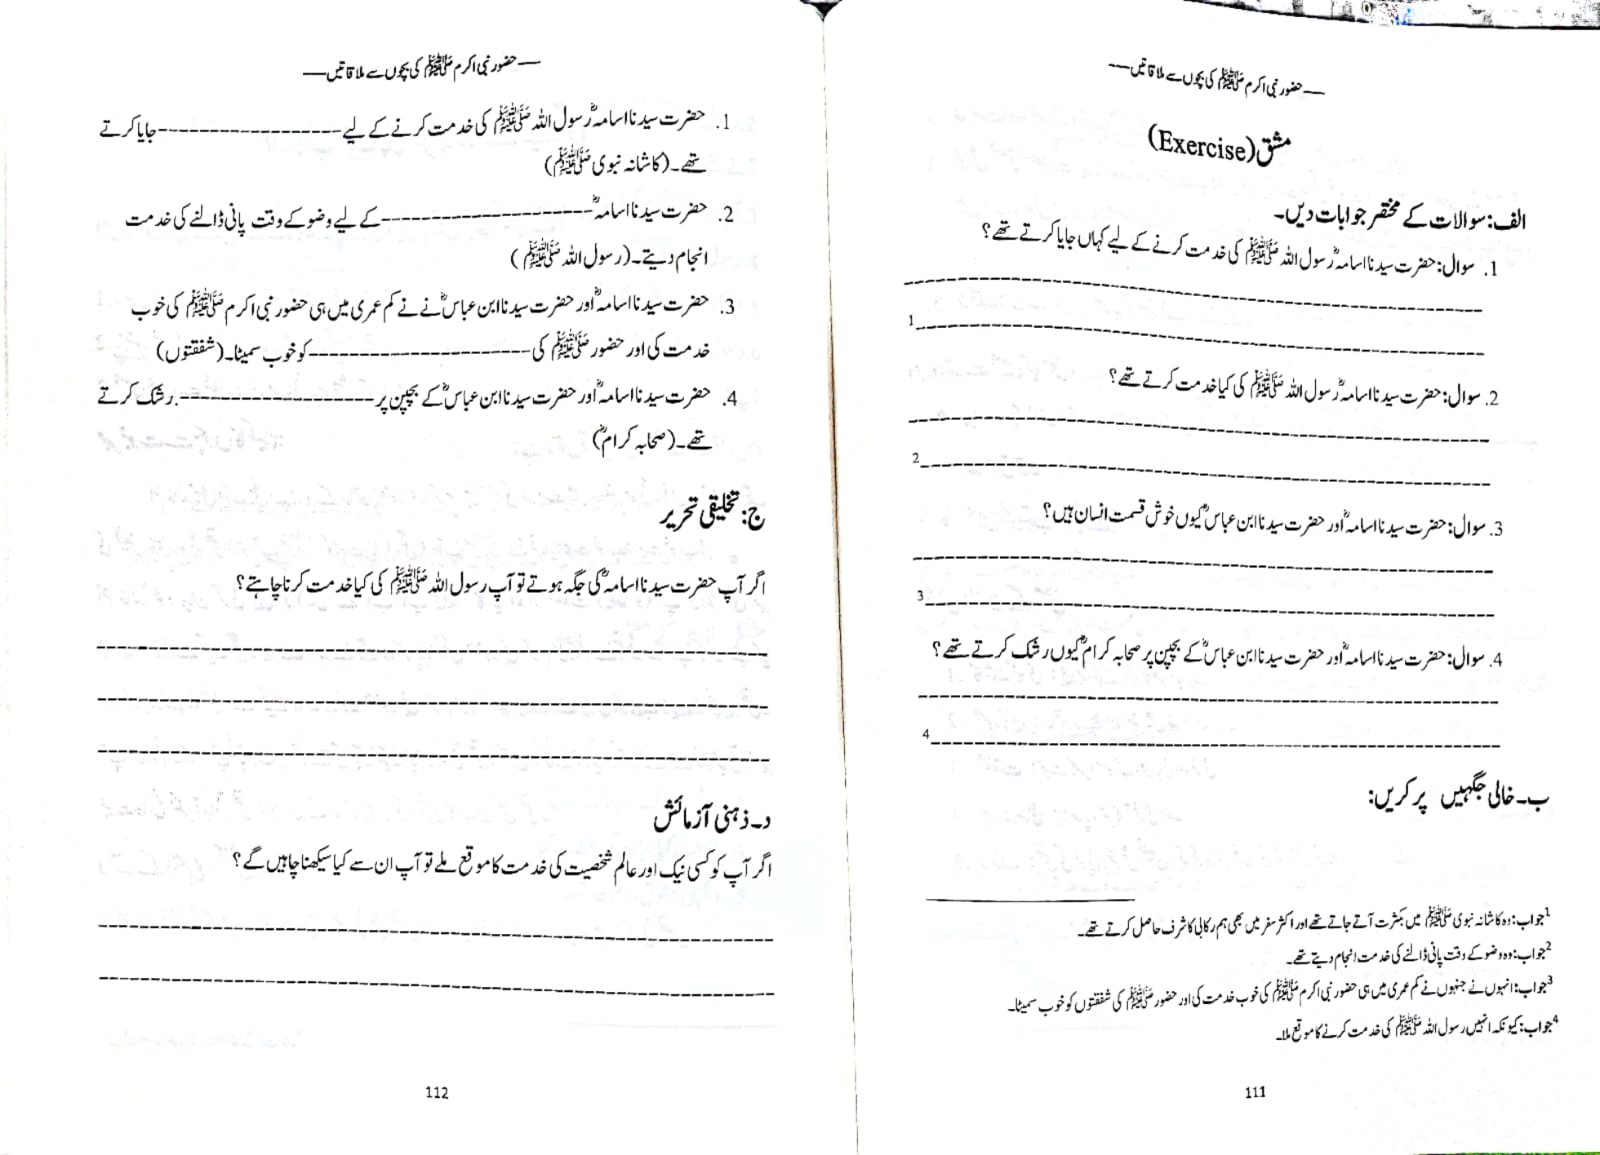 —حضور نبی اکرم ﷺ کی بچوں سے ملاقاتیں—
مشق (Exercise)
الف: سوالات کے مختصر جوابات دیں۔
1. سوال: حضرت سیدنا اسامہؓ رسول اللہ ﷺ کی خدمت کرنے کے لیے کہاں جایا کرتے تھے؟
1
2. سوال: حضرت سیدنا اسامہؓ رسول اللہ ﷺ کی کیا خدمت کرتے تھے؟
2
3. سوال: حضرت سیدنا اسامہؓ اور حضرت سیدنا ابن عباسؓ کیوں خوش قسمت انسان ہیں؟
3
4. سوال: حضرت سیدنا اسامہؓ اور حضرت سیدنا ابن عباسؓ کے بچپن پر صحابہ کرامؓ کیوں رشک کرتے تھے؟
4
ب۔ خالی جگہیں پر کریں:
1جواب: وہ کاشانہ نبوی ﷺ میں بکثرت آتے جاتے تھے اور اکثر سفر میں بھی ہم رکابی کا شرف حاصل کرتے تھے۔
2جواب: وہ وضو کے وقت پانی ڈالنے کی خدمت انجام دیتے تھے۔
3جواب: انہوں نے جنہوں نے کم عمری میں ہی حضور نبی اکرم ﷺ کی خوب خدمت کی اور حضور ﷺ کی شفقتوں کو خوب سمیٹا۔
4جواب: کیونکہ انہیں رسول اللہ ﷺ کی خدمت کرنے کا موقع ملا۔
111
—حضور نبی اکرم ﷺ کی بچوں سے ملاقاتیں—
1. حضرت سیدنا اسامہؓ رسول اللہ ﷺ کی خدمت کرنے کے لیے ------------------ جایا کرتے
تھے۔ (کاشانہ نبوی ﷺ)
2. حضرت سیدنا اسامہؓ -------------------- کے لیے وضو کے وقت پانی ڈالنے کی خدمت
انجام دیتے۔ (رسول اللہ ﷺ)
3. حضرت سیدنا اسامہؓ اور حضرت سیدنا ابن عباسؓ نے نے کم عمری میں ہی حضور نبی اکرم ﷺ کی خوب
خدمت کی اور حضور ﷺ کی --------------------- کو خوب سمیٹا۔ (شفقتوں)
4. حضرت سیدنا اسامہؓ اور حضرت سیدنا ابن عباسؓ کے بچپن پر ------------------- رشک کرتے
تھے۔ (صحابہ کرامؓ)
ج: تخلیقی تحریر
اگر آپ حضرت سیدنا اسامہؓ کی جگہ ہوتے تو آپ رسول اللہ ﷺ کی کیا خدمت کرنا چاہتے؟
د۔ ذہنی آزمائش
اگر آپ کو کسی نیک اور عالم شخصیت کی خدمت کا موقع ملے تو آپ ان سے کیا سیکھنا چاہیں گے؟
112